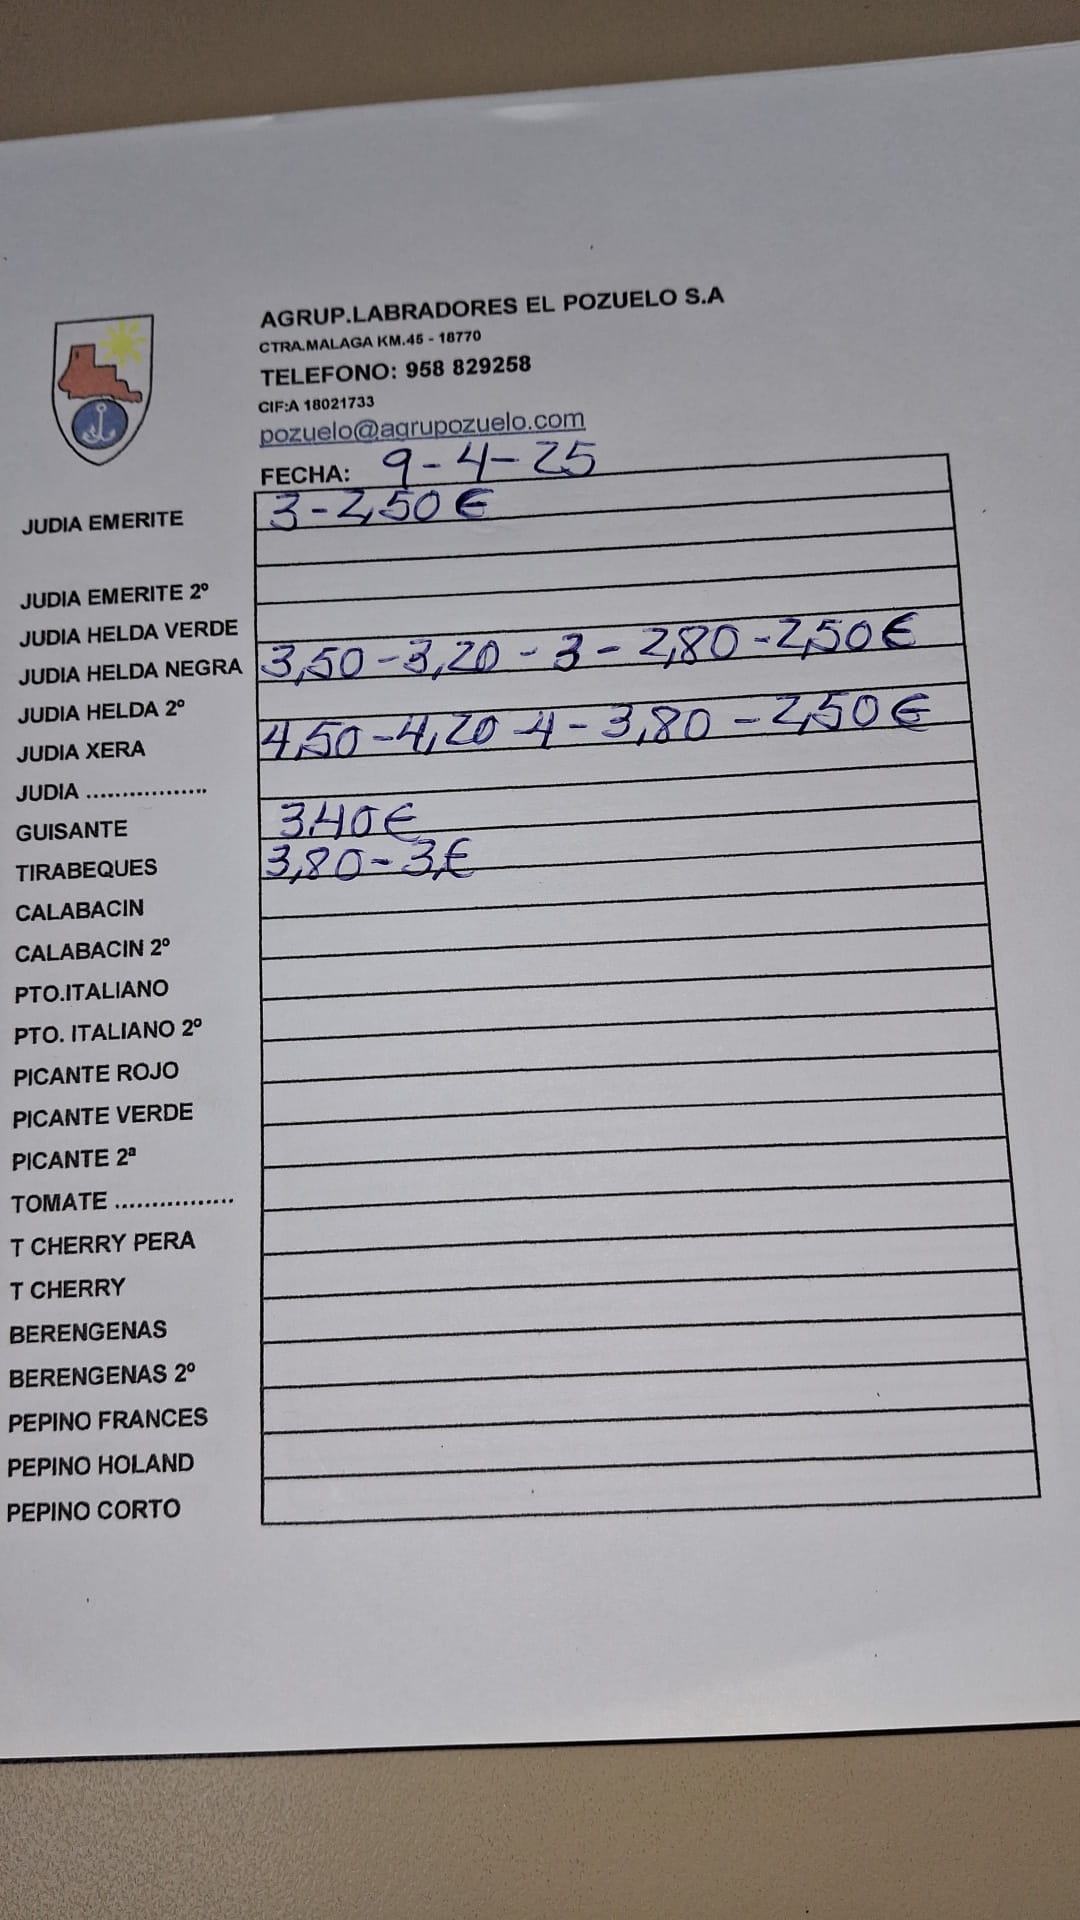 AGRUP.LABRADORES EL POZUELO S.A
CTRA.MALAGA KM.45 - 18770
TELEFONO: 958 829258
CIF:A 18021733
pozuelo@agrupozuelo.com
FECHA: 9-4-25
JUDIA EMERITE 3-2,50 €
JUDIA EMERITE 2º
JUDIA HELDA VERDE
JUDIA HELDA NEGRA 3,50-3,20-3-2,80-2,50€
JUDIA HELDA 2º
JUDIA XERA 4,50-4,20-4-3,80-2,50€
JUDIA .................
GUISANTE 3,40€
TIRABEQUES 3,80-3,€
CALABACIN
CALABACIN 2º
PTO.ITALIANO
PTO. ITALIANO 2º
PICANTE ROJO
PICANTE VERDE
PICANTE 2ª
TOMATE ................
T CHERRY PERA
T CHERRY
BERENGENAS
BERENGENAS 2º
PEPINO FRANCES
PEPINO HOLAND
PEPINO CORTO